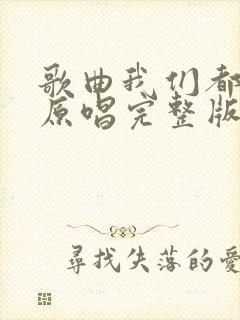 歌曲我们都
原唱完整版
尋找失落的愛